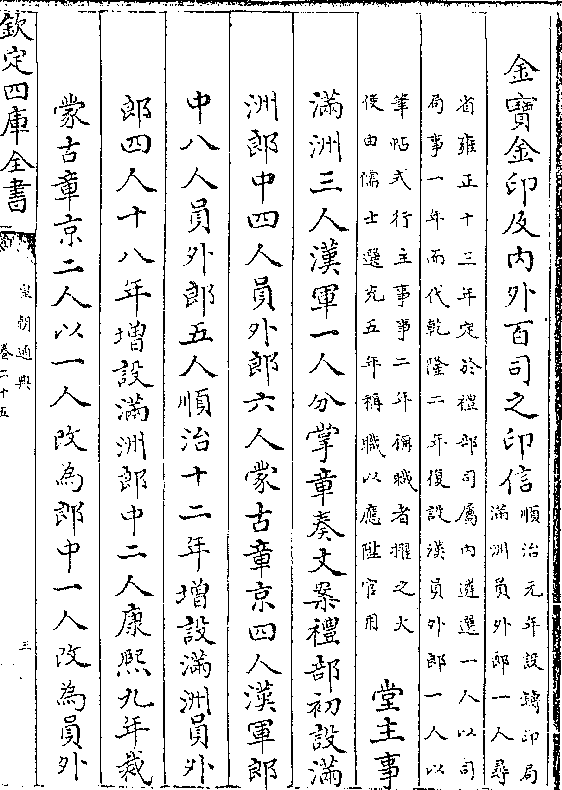 金寶金印及内外百司之印信
順治元年設鑄印局
滿洲員外郎一人尋
省雍正十三年定於禮部司屬内遴選一人以司
局事一年而代乾隆二年復設漢員外郎一人以
筆帖式行主事事二年稱職者擢之大
使由儒士選充五年稱職以應陞官用
堂主事
滿洲三人漢軍一人分掌章奏文案禮部初設滿
洲郎中四人員外郎六人蒙古章京四人漢軍郎
中八人員外郎五人順治十二年增設滿洲員外
郎四人十八年增設滿洲郎中二人康熙九年裁
蒙古章京二人以一人改為郎中一人改為員外
欽定四庫全書
皇朝通典
卷二十五
三